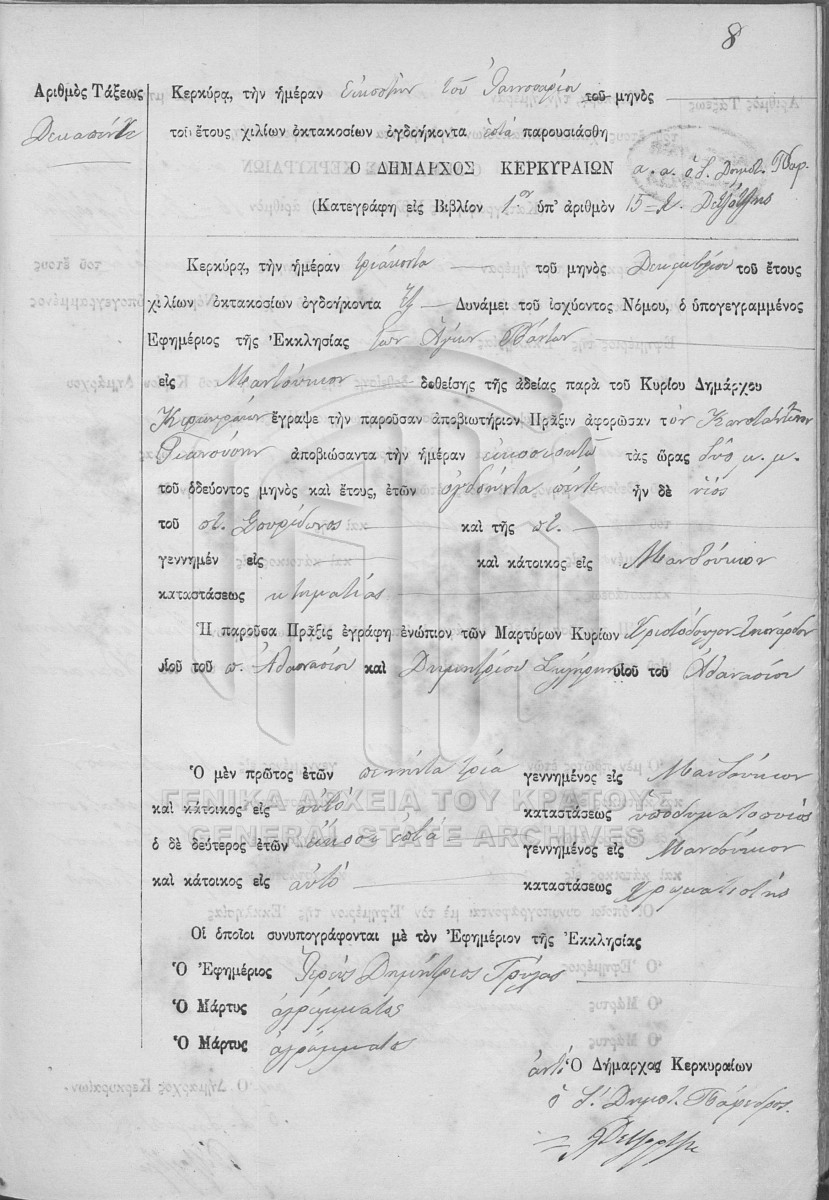 8
Ἀριθμὸς Τάξεως
Δεκαπέντε
Κερκύρᾳ, τὴν ἡμέραν εἰκοστὴν τοῦ Ἰαννουαρίου τοῦ μηνὸς
τοῦ ἔτους χιλίων ὀκτακοσίων ὀγδοήκοντα ἑπτά παρουσιάσθη
Ὁ ΔΗΜΑΡΧΟΣ ΚΕΡΚΥΡΑΙΩΝ α. α. ὁ Δημοτ. Παρ.
(Κατεγράφη εἰς Βιβλίον 1ον ὑπ' ἀριθμὸν 15
Κερκύρᾳ, τὴν ἡμέραν τριάκοντα τοῦ μηνὸς Δεκεμβρίου τοῦ ἔτους
χιλίων ὀκτακοσίων ὀγδοήκοντα ἕξ Δυνάμει τοῦ ἰσχύοντος Νόμου, ὁ ὑπογεγραμμένος
Ἐφημέριος τῆς Ἐκκλησίας τῶν Ἁγίων Πάντων
εἰς Μαντούκιον δοθείσης τῆς ἀδείας παρὰ τοῦ Κυρίου Δημάρχου
Κερκυραίων ἔγραψε τὴν παροῦσαν ἀποβιωτήριον Πρᾶξιν ἀφορῶσαν τὸν Κωνσταντῖνον
Γιανούλην ἀποβιώσαντα τὴν ἡμέραν τὰς ὥρας δύο μ. μ.
τοῦ ὁδεύοντος μηνὸς καὶ ἔτους, ἐτῶν ὀγδοήντα πέντε ἦν δὲ υἱός
τοῦ π. Σπυρίδωνος καὶ τῆς π.
γεννημέν εἰς καὶ κάτοικος εἰς Μανδούκιον
καταστάσεως κτηματίας
Ἡ παροῦσα Πρᾶξις ἐγράφη ἐνώπιον τῶν Μαρτύρων Κυρίων Χριστόδουλον
υἱοῦ τοῦ π. Ἀθανασίου καὶ Δημητρίου υἱοῦ τοῦ Ἀθανασίου
Ὁ μὲν πρῶτος ἐτῶν πενήντα τρία γεννημένος εἰς Μανδούκιον
καὶ κάτοικος εἰς αὐτό καταστάσεως ὑποδηματοποιός
ὁ δὲ δεύτερος ἐτῶν εἴκοσι ἑπτά γεννημένος εἰς Μανδούκιον
καὶ κάτοικος εἰς αὐτό καταστάσεως χρωματιστής
Οἱ ὁποῖοι συνυπογράφονται μὲ τὸν Ἐφημέριον τῆς Ἐκκλησίας
Ὁ Ἐφημέριος Ἱερεὺς Δημήτριος Γρύλας
Ὁ Μάρτυς ἀγράμματος
Ὁ Μάρτυς ἀγράμματος
ἀντὶ Ὁ Δήμαρχος Κερκυραίων
ὁ Δημοτ. Πάρεδρος.
ΓΕΝΙΚΑ ΑΡΧΕΙΑ ΤΟΥ ΚΡΑΤΟΥΣ
GENERAL STATE ARCHIVES